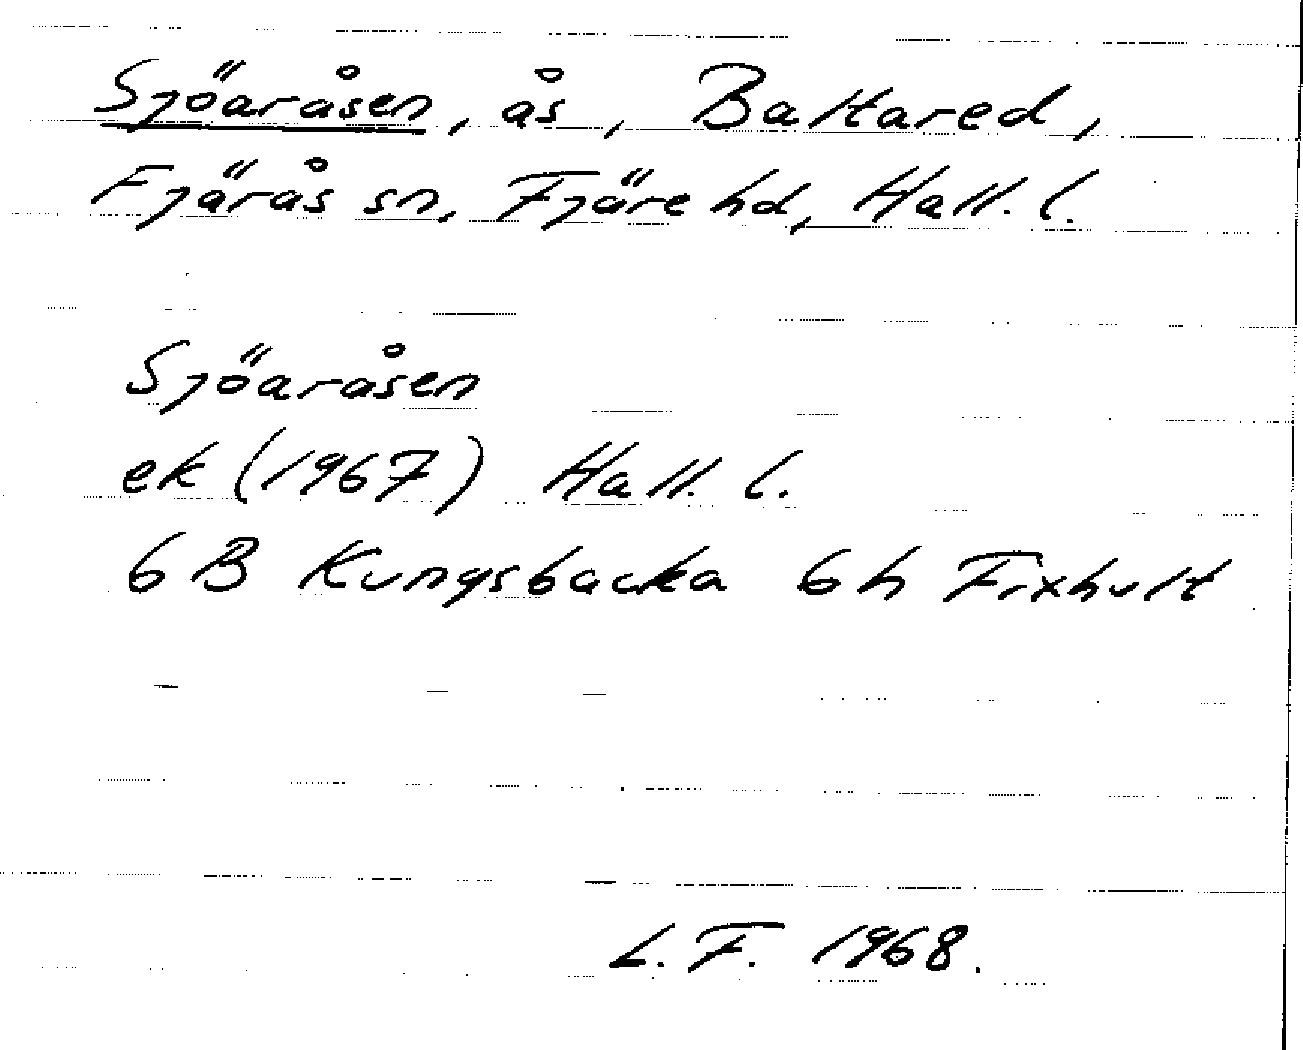 Sjöaråsen, ås, Baltared,
Fjärås sn, Fjäre hd, Hall. l.
Sjöaråsen
ek (1967) Hall. l.
6 B Kungsbacka 6 h Fixhult
L. F. 1968.